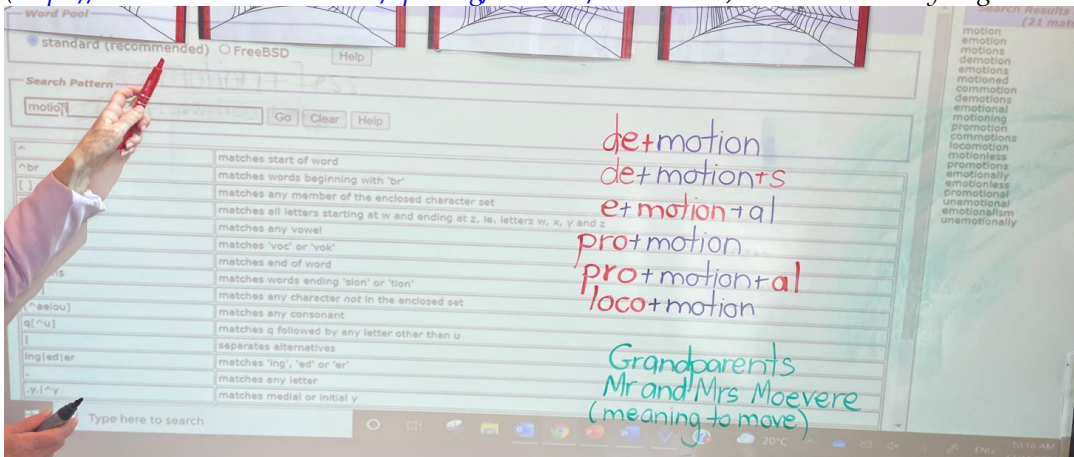 Word Pool
standard (recommended) FreeBSD Help
Search Pattern
motion Go Clear Help
^ matches start of word
^br matches words beginning with 'br'
matches any member of the enclosed character set
matches all letters starting at w and ending at z, ie. letters w, x, y and z
matches any vowel
matches 'voc' or 'vok'
matches end of word
matches words ending 'sion' or 'tion'
matches any character not in the enclosed set
[^aeiou] matches any consonant
q[^u] matches q followed by any letter other than u
| separates alternatives
ing|ed|er matches 'ing', 'ed' or 'er'
. matches any letter
.y.|^y matches medial or initial y
Type here to search
de+motion
de+motion+s
e+motion+al
pro+motion
pro+motion+al
loco+motion
Grandparents
Mr and Mrs Moevere
(meaning to move)
Search Results
(21
motion
emotion
motions
demotion
emotions
motioned
commotion
demotions
emotional
motioning
promotion
commotions
locomotion
motionless
promotions
emotionally
emotionless
promotional
unemotional
emotionalism
unemotionally
20°C
ENG 10:16 AM